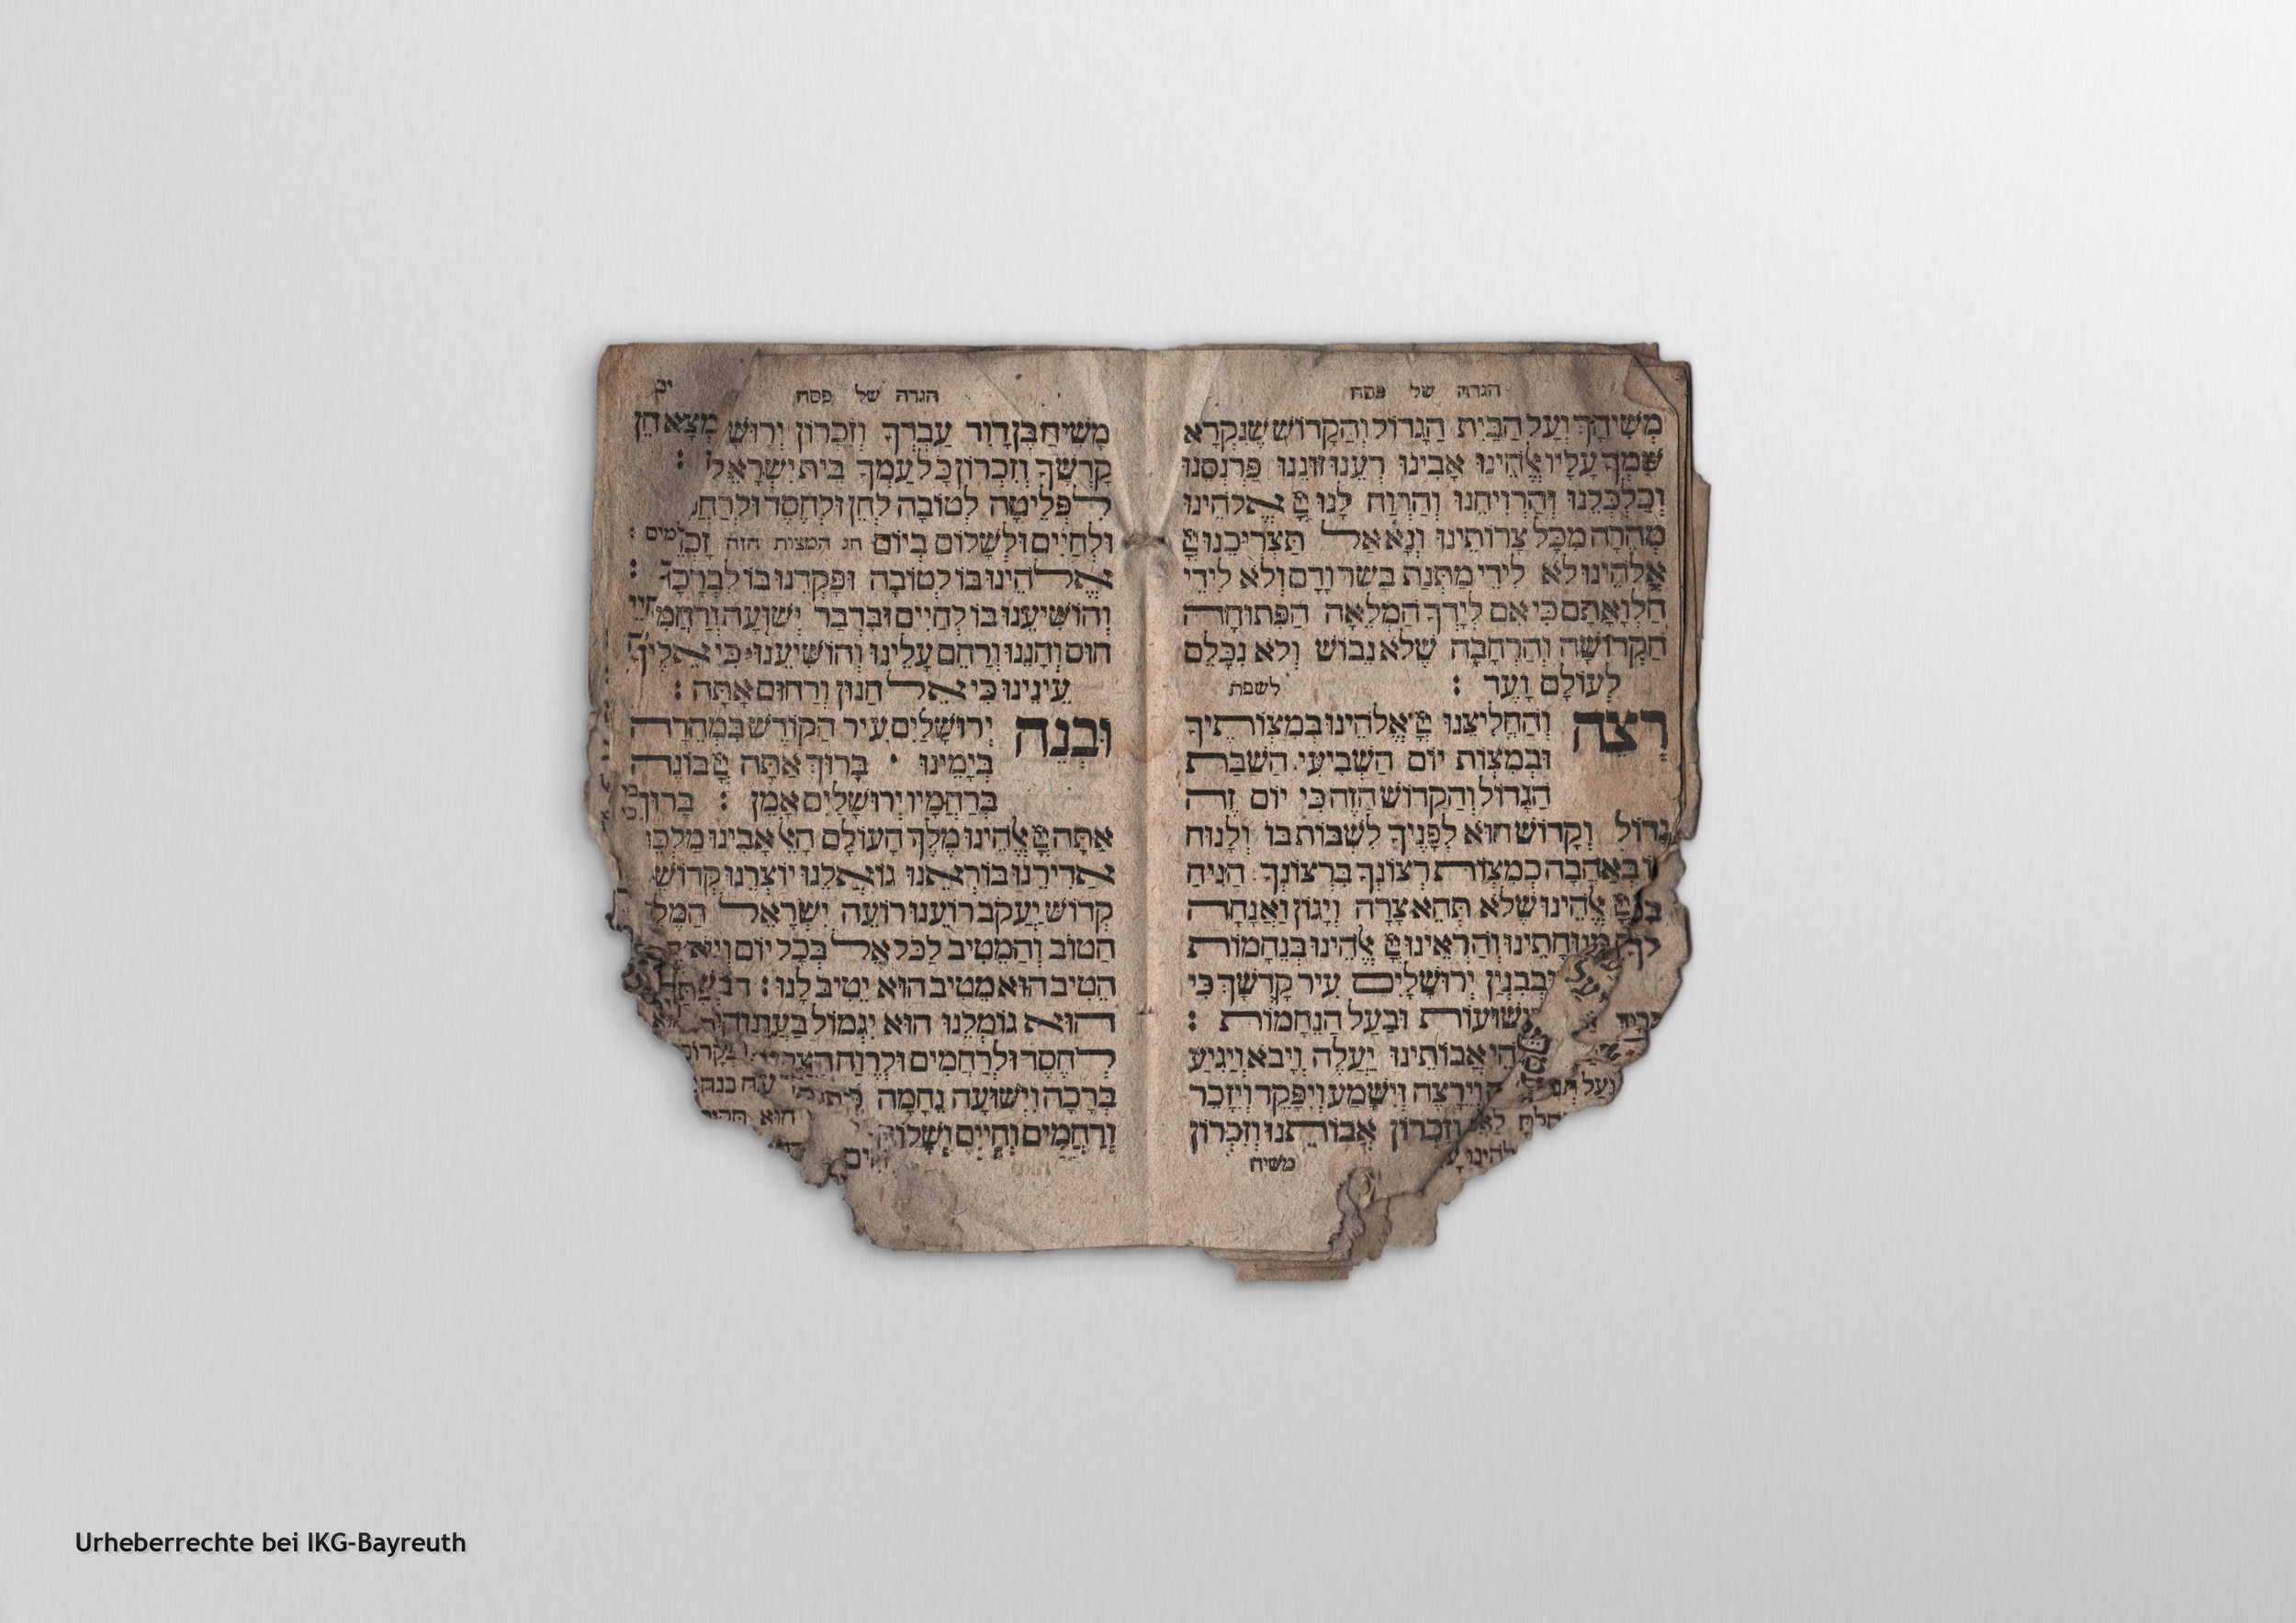 הגדה של פסח
מְשִׁיחֶךָ וְעַל הַבַּיִת הַגָּדוֹל וְהַקָּדוֹשׁ שֶׁנִּקְרָא
שִׁמְךָ עָלָיו אֱלֹהֵינוּ אָבִינוּ רְעֵנוּ זוּנֵנוּ פַּרְנְסֵנוּ
וְכַלְכְּלֵנוּ וְהַרְוִיחֵנוּ וְהַרְוַח לָנוּ אֱלֹהֵינוּ
מְהֵרָה מִכָּל צָרוֹתֵינוּ וְנָא אַל תַּצְרִיכֵנוּ
אֱלֹהֵינוּ לֹא לִידֵי מַתְּנַת בָּשָׂר וָדָם וְלֹא לִידֵי
הַלְוָאָתָם כִּי אִם לְיָדְךָ הַמְּלֵאָה הַפְּתוּחָה
הַקְּדוֹשָׁה וְהָרְחָבָה שֶׁלֹּא נֵבוֹשׁ וְלֹא נִכָּלֵם
לְעוֹלָם וָעֶד : לשבת
רְצֵה וְהַחֲלִיצֵנוּ אֱלֹהֵינוּ בְּמִצְוֹתֶיךָ
וּבְמִצְוֹת יוֹם הַשְּׁבִיעִי הַשַּׁבָּת
הַגָּדוֹל וְהַקָּדוֹשׁ הַזֶּה כִּי יוֹם זֶה
גָּדוֹל וְקָדוֹשׁ הוּא לְפָנֶיךָ לִשְׁבּוֹת בּוֹ וְלָנוּחַ
בּוֹ בְּאַהֲבָה כְּמִצְוֹת רְצוֹנֶךָ בִּרְצוֹנְךָ הָנִיחַ
אֱלֹהֵינוּ שֶׁלֹּא תְּהֵא צָרָה וְיָגוֹן וַאֲנָחָה
מְנוּחָתֵינוּ וְהַרְאֵינוּ אֱלֹהֵינוּ בְּנֶחָמוֹת
וּבְבִנְיַן יְרוּשָׁלַיִם עִיר קָדְשֶׁךָ כִּי
יְשׁוּעוֹת וּבַעַל הַנֶּחָמוֹת :
אֲבוֹתֵינוּ יַעֲלֶה וְיָבֹא וְיַגִּיעַ
וְיֵרָצֶה וְיִשָּׁמַע וְיִפָּקֵד וְיִזָּכֵר
וְזִכְרוֹן אֲבוֹתֵנוּ וְזִכְרוֹן
משיח
יב
הגדה של פסח
מָשִׁיחַ בֶּן דָּוִד עַבְדֶּךָ וְזִכְרוֹן יְרוּשׁ
קָדְשֶׁךָ וְזִכְרוֹן כָּל עַמְּךָ בֵּית יִשְׂרָאֵל
לִפְלֵיטָה לְטוֹבָה לְחֵן וּלְחֶסֶד וּלְרַחֲ
וּלְחַיִּים וּלְשָׁלוֹם בְּיוֹם חג המצות הזה זָכְ
אֱלֹהֵינוּ בּוֹ לְטוֹבָה וּפָקְדֵנוּ בוֹ לִבְרָכָ
וְהוֹשִׁיעֵנוּ בוֹ לְחַיִּים וּבִדְבַר יְשׁוּעָה וְרַחֲמִ
חוּס וְחָנֵּנוּ וְרַחֵם עָלֵינוּ וְהוֹשִׁיעֵנוּ כִּי אֵלֶיךָ
עֵינֵינוּ כִּי אֵל חַנּוּן וְרַחוּם אָתָּה :
וּבְנֵה יְרוּשָׁלַיִם עִיר הַקּוֹדֶשׁ בִּמְהֵרָה
בְיָמֵינוּ · בָּרוּךְ אַתָּה בּוֹנֵה
בְרַחֲמָיו יְרוּשָׁלַיִם אָמֵן : בָּרוּךְ
אַתָּה אֱלֹהֵינוּ מֶלֶךְ הָעוֹלָם הָאֵל אָבִינוּ מַלְכֵּנוּ
אַדִּירֵנוּ בּוֹרְאֵנוּ גוֹאֲלֵנוּ יוֹצְרֵנוּ קְדוֹשׁ
קְדוֹשׁ יַעֲקֹב רוֹעֵנוּ רוֹעֵה יִשְׂרָאֵל הַמֶּלֶ
הַטּוֹב וְהַמֵּטִיב לַכֹּל אֵל בְּכָל יוֹם וָיוֹם
הֵטִיב הוּא מֵטִיב הוּא יֵטִיב לָנוּ :
הוּא גוֹמְלֵנוּ הוּא יִגְמוֹל
לְחֶסֶד וּלְרַחֲמִים וּלְרֶוַח הַצָּלָה
בְּרָכָה וִישׁוּעָה נֶחָמָה
וְרַחֲמִים וְחַיִּים וְשָׁלוֹ
Urheberrechte bei IKG-Bayreuth